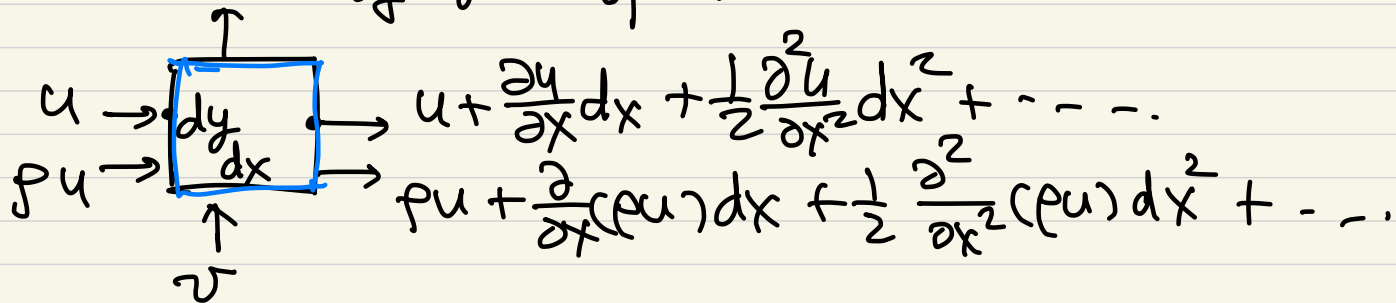 u → dy → u + ∂u/∂x dx + 1/2 ∂²u/∂x² dx² + - - - -.
ρu → dx → ρu + ∂/∂x (ρu) dx + 1/2 ∂²/∂x² (ρu) dx² + - - -.
v